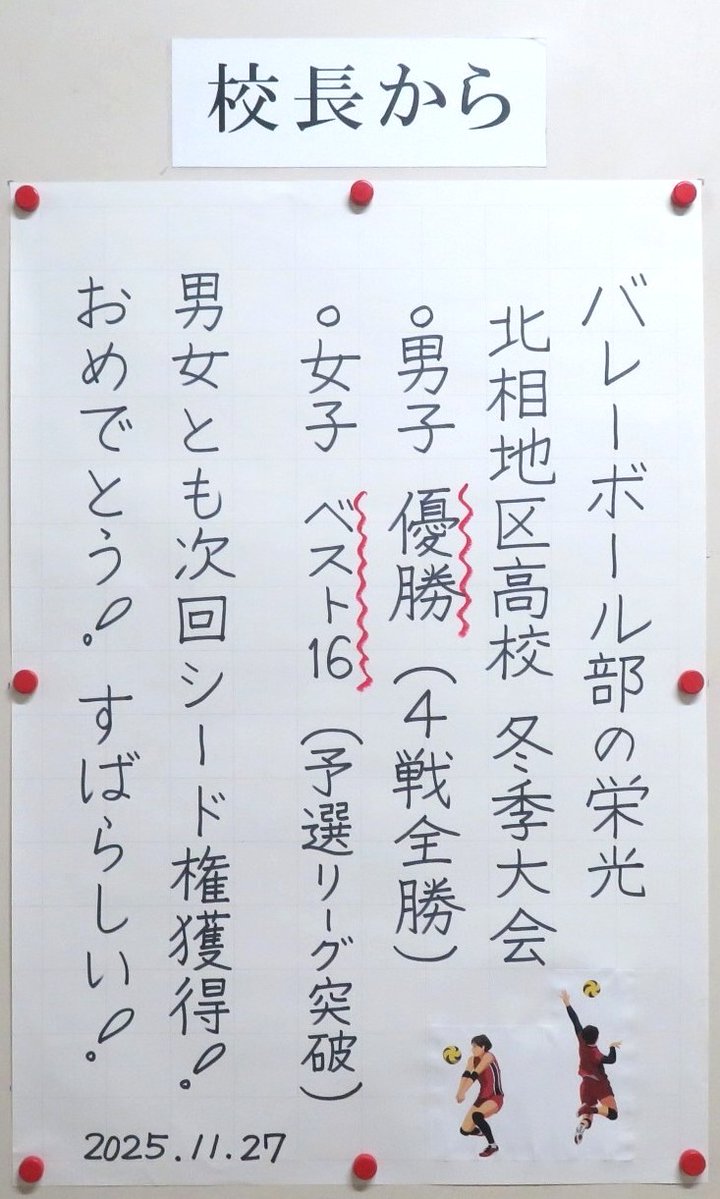 校長から
バレーボール部の栄光
北相地区高校 冬季大会
○男子 優勝(4戦全勝)
○女子 ベスト16(予選リーグ突破)
男女とも次回シード権獲得!
おめでとう! すばらしい!
2025.11.27